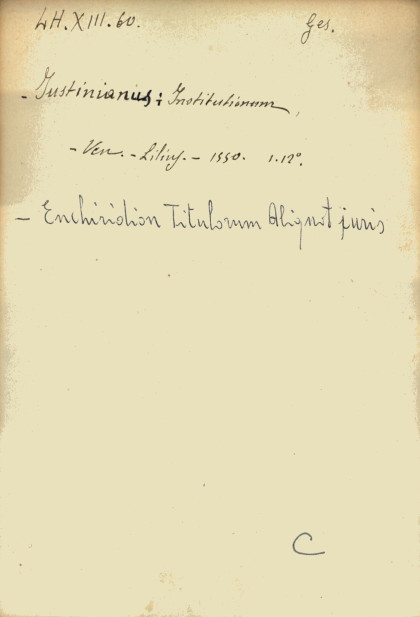 LH.XIII.60. Ges.
- Justinianus: Institutionum,
- Ven. - Lilius. - 1550. 1.12º.
- Enchiridion Titulorum Aliquot juris
C